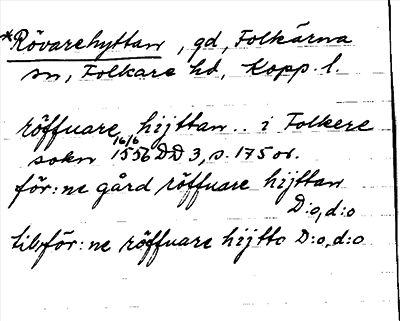 *Rövarehyttan, gd, Folkärna
sn, Folkare hd, Kopp. l.
röffuare hijttan.. i Folkere
sokn 16/6 1556 DD 3, s. 175 or.
för:ne gård röffuare hijttan
D:o, d:o
til för:ne röffuare hijtto D:o, d:o